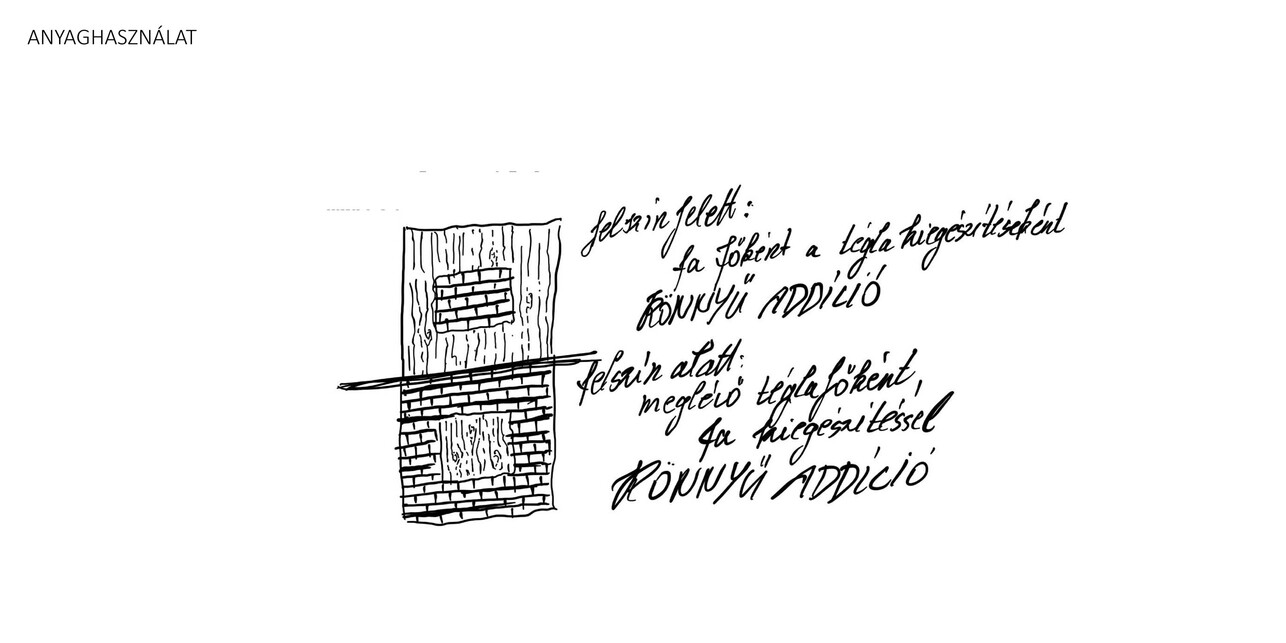 ANYAGHASZNÁLAT
felszín felett:
fa főként a tégla kiegészítéseként
KÖNNYŰ ADDÍCIÓ
felszín alatt:
meglévő tégla főként,
fa kiegészítéssel
KÖNNYŰ ADDÍCIÓ